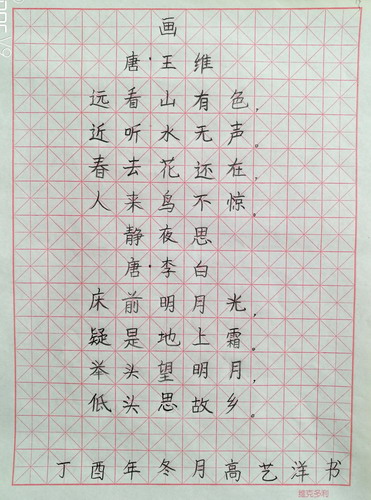 画
唐·王维
远看山有色，
近听水无声。
春去花还在，
人来鸟不惊。
静夜思
唐·李白
床前明月光，
疑是地上霜。
举头望明月，
低头思故乡。
丁酉年冬月高艺洋书